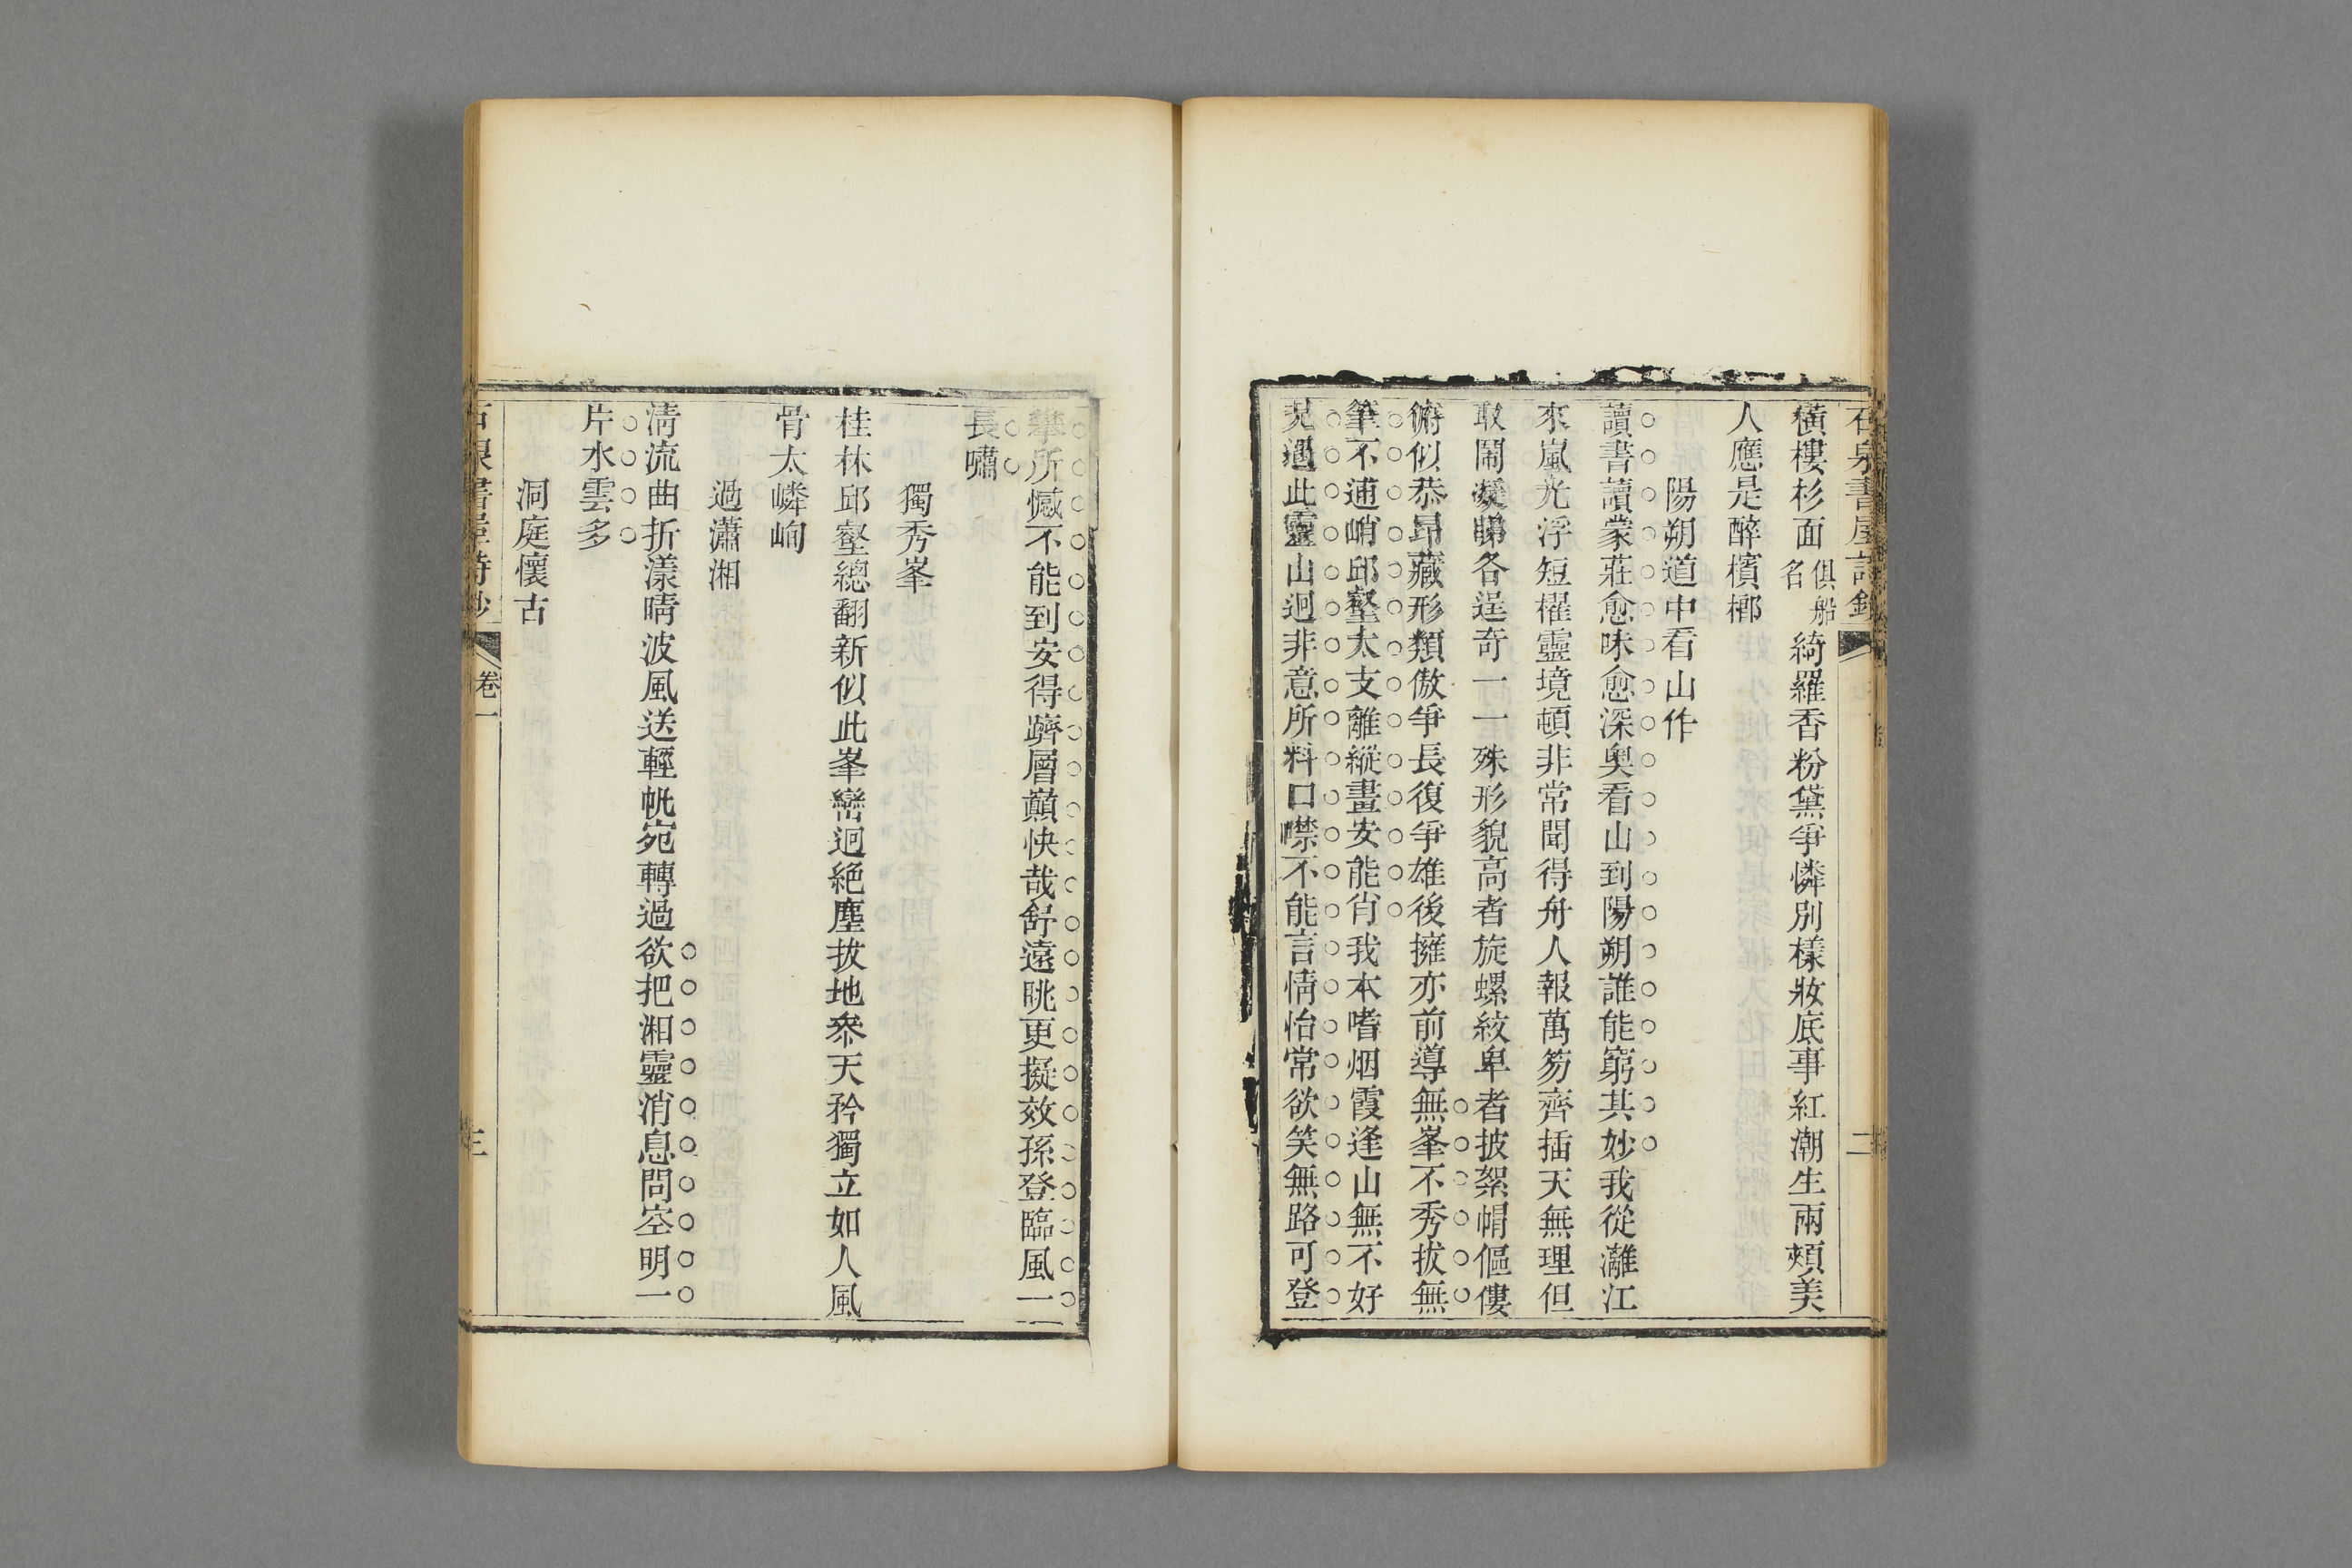 石泉書屋詩鈔 二
橫樓杉面俱船名綺羅香粉黛爭憐別樣妝底事紅潮生兩頰美
人應是醉檳榔
陽朔道中看山作
讀書讀蒙莊愈味愈深奧看山到陽朔誰能窮其妙我從灕江
來嵐光浮短櫂靈境頓非常聞得舟人報萬笏齊插天無理但
取鬧凝睇各逞奇一一殊形貌高者旋螺紋卑者披絮帽傴僂
俯似恭昂藏形類傲爭長復爭雄後擁亦前導無峯不秀拔無
筆不逋峭邱壑太支離縱畫安能肖我本嗜烟霞逢山無不好
見過此靈山迥非意所料口噤不能言情怡常欲笑無路可登
攀所憾不能到安得躋層巔快哉舒遠眺更擬效孫登臨風一
長嘯
獨秀峯
桂林邱壑總翻新似此峯巒迥絕塵拔地叅天矜獨立如人風
骨太嶙峋
過瀟湘
淸流曲折漾晴波風送輕帆宛轉過欲把湘靈消息問空明一
片水雲多
洞庭懷古
石泉書屋詩鈔 卷一 三